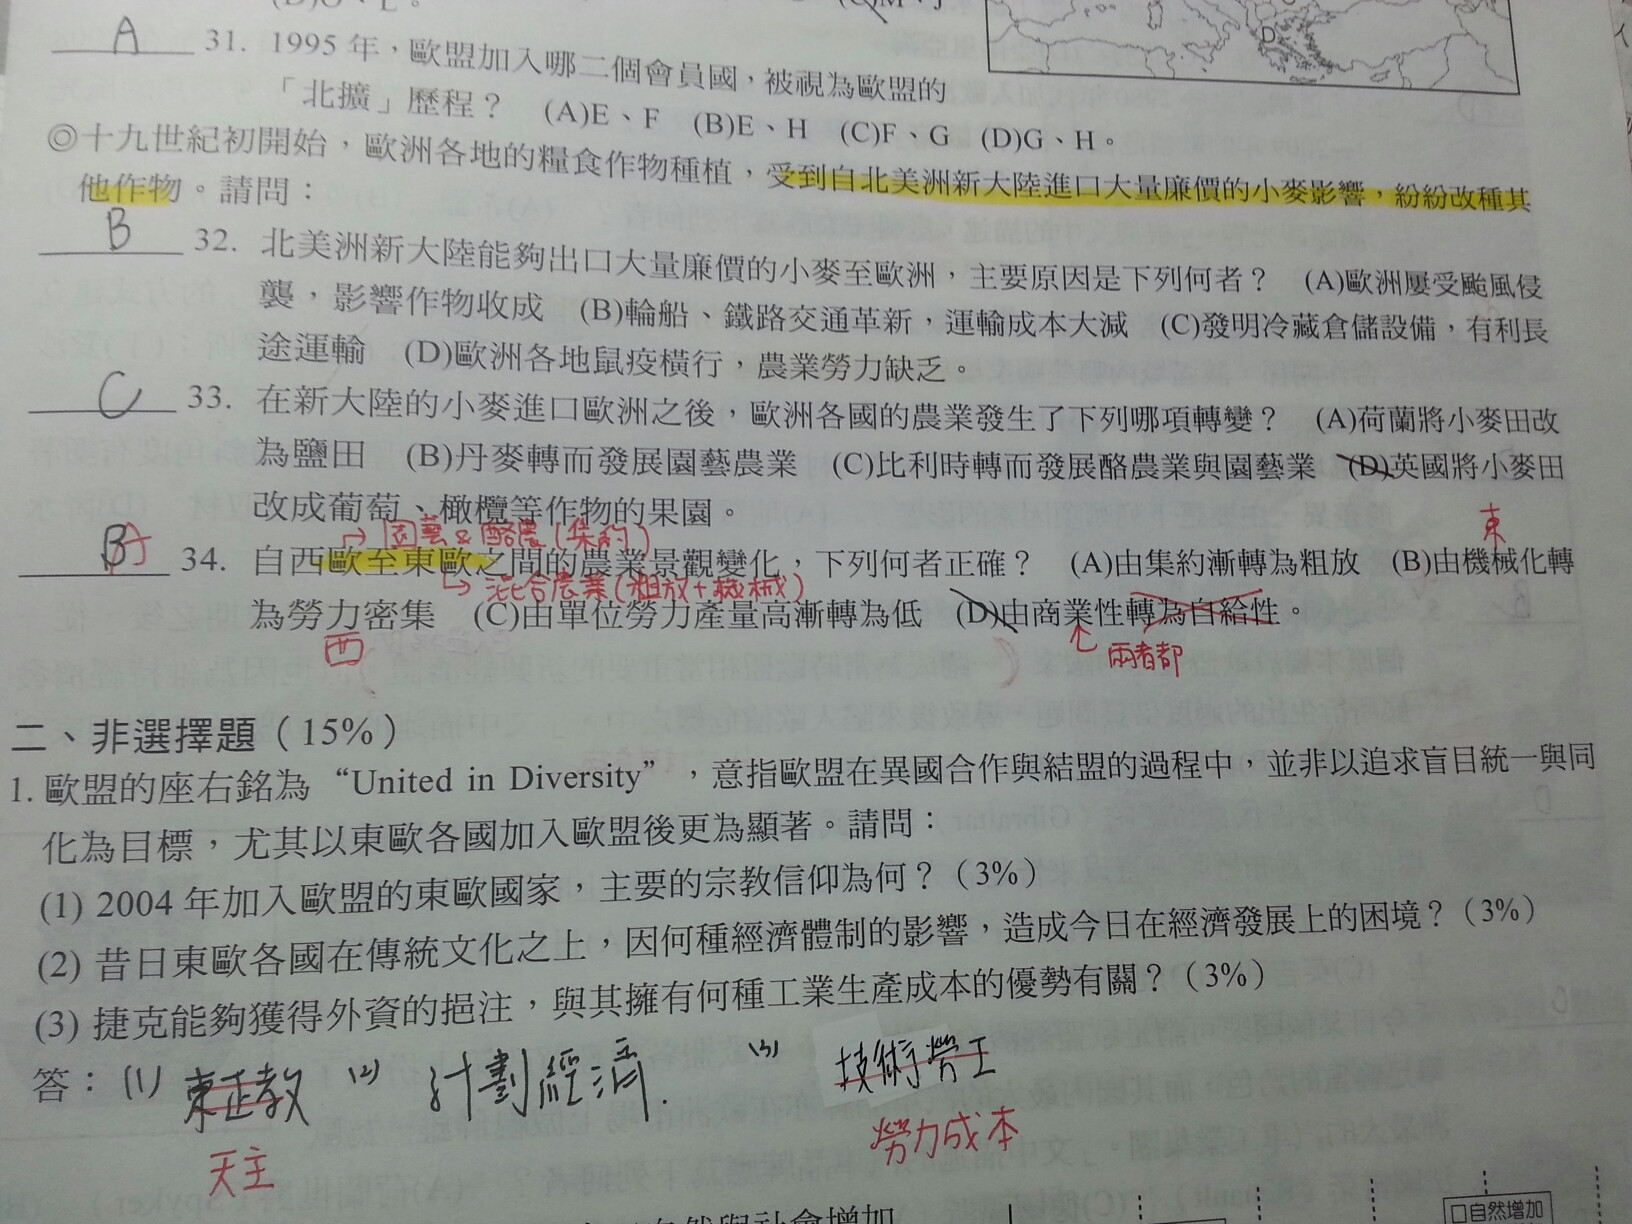 A 31. 1995年，歐盟加入哪二個會員國，被視為歐盟的
「北擴」歷程？ (A)E、F (B)E、H (C)F、G (D)G、H。
D
◎十九世紀初開始，歐洲各地的糧食作物種植，受到自北美洲新大陸進口大量廉價的小麥影響，紛紛改種其
他作物。請問：
B 32. 北美洲新大陸能夠出口大量廉價的小麥至歐洲，主要原因是下列何者？ (A)歐洲屢受颱風侵
襲，影響作物收成 (B)輪船、鐵路交通革新，運輸成本大減 (C)發明冷藏倉儲設備，有利長
途運輸 (D)歐洲各地鼠疫橫行，農業勞力缺乏。
C 33. 在新大陸的小麥進口歐洲之後，歐洲各國的農業發生了下列哪項轉變？ (A)荷蘭將小麥田改
為鹽田 (B)丹麥轉而發展園藝農業 (C)比利時轉而發展酪農業與園藝業 (D)英國將小麥田
改成葡萄、橄欖等作物的果園。
→園藝&酪農(集約)
東
B 34. 自西歐至東歐之間的農業景觀變化，下列何者正確？ (A)由集約漸轉為粗放 (B)由機械化轉
→混合農業(粗放+機械)
為勞力密集 (C)由單位勞力產量高漸轉為低 (D)由商業性轉為自給性。
西
兩者都
二、非選擇題（15%）
1. 歐盟的座右銘為“United in Diversity”，意指歐盟在異國合作與結盟的過程中，並非以追求盲目統一與同
化為目標，尤其以東歐各國加入歐盟後更為顯著。請問：
(1) 2004年加入歐盟的東歐國家，主要的宗教信仰為何？（3%）
(2) 昔日東歐各國在傳統文化之上，因何種經濟體制的影響，造成今日在經濟發展上的困境？（3%）
(3) 捷克能夠獲得外資的挹注，與其擁有何種工業生產成本的優勢有關？（3%）
答：(1) 東正教 (2) 計劃經濟. (3) 技術勞工
天主
勞力成本
自然增加